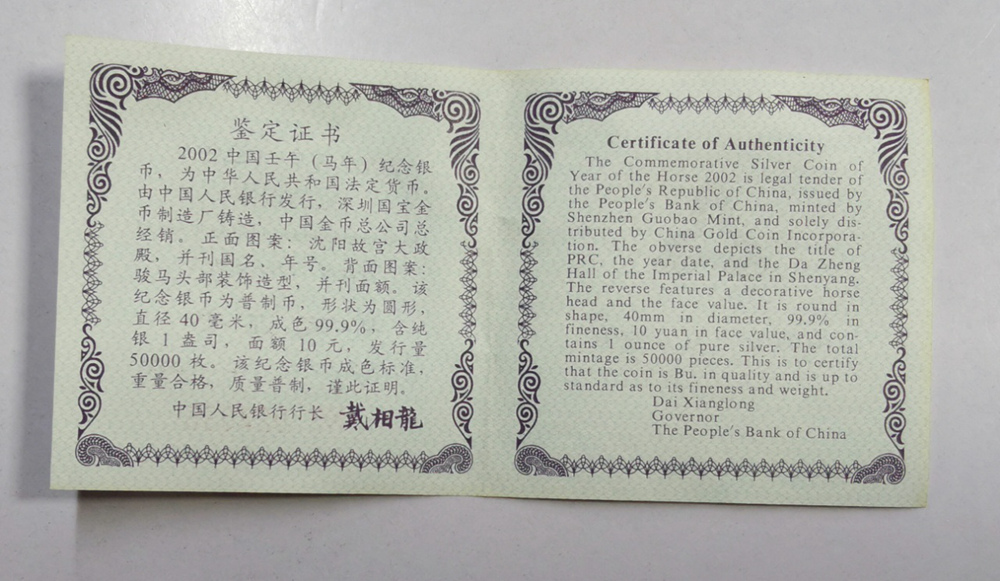 鉴定证书
2002 中国壬午（马年）纪念银
币，为中华人民共和国法定货币。
由中国人民银行发行，深圳国宝金
币制造厂铸造，中国金币总公司总
经销。正面图案：沈阳故宫大政
殿，并刊国名、年号。背面图案：
骏马头部装饰造型，并刊面额。该
纪念银币为普制币，形状为圆形，
直径 40 毫米，成色 99.9%，含纯
银 1 盎司，面额 10 元，发行量
50000 枚。该纪念银币成色标准，
重量合格，质量普制，谨此证明。
中国人民银行行长 戴相龍
Certificate of Authenticity
The Commemorative Silver Coin of
Year of the Horse 2002 is legal tender of
the People's Republic of China, issued by
the People's Bank of China, minted by
Shenzhen Guobao Mint, and solely dis-
tributed by China Gold Coin Incorpora-
tion. The obverse depicts the title of
PRC, the year date, and the Da Zheng
Hall of the Imperial Palace in Shenyang.
The reverse features a decorative horse
head and the face value. It is round in
shape, 40mm in diameter, 99.9% in
fineness, 10 yuan in face value, and con-
tains 1 ounce of pure silver. The total
mintage is 50000 pieces. This is to certify
that the coin is Bu. in quality and is up to
standard as to its fineness and weight.
Dai Xianglong
Governor
The People's Bank of China